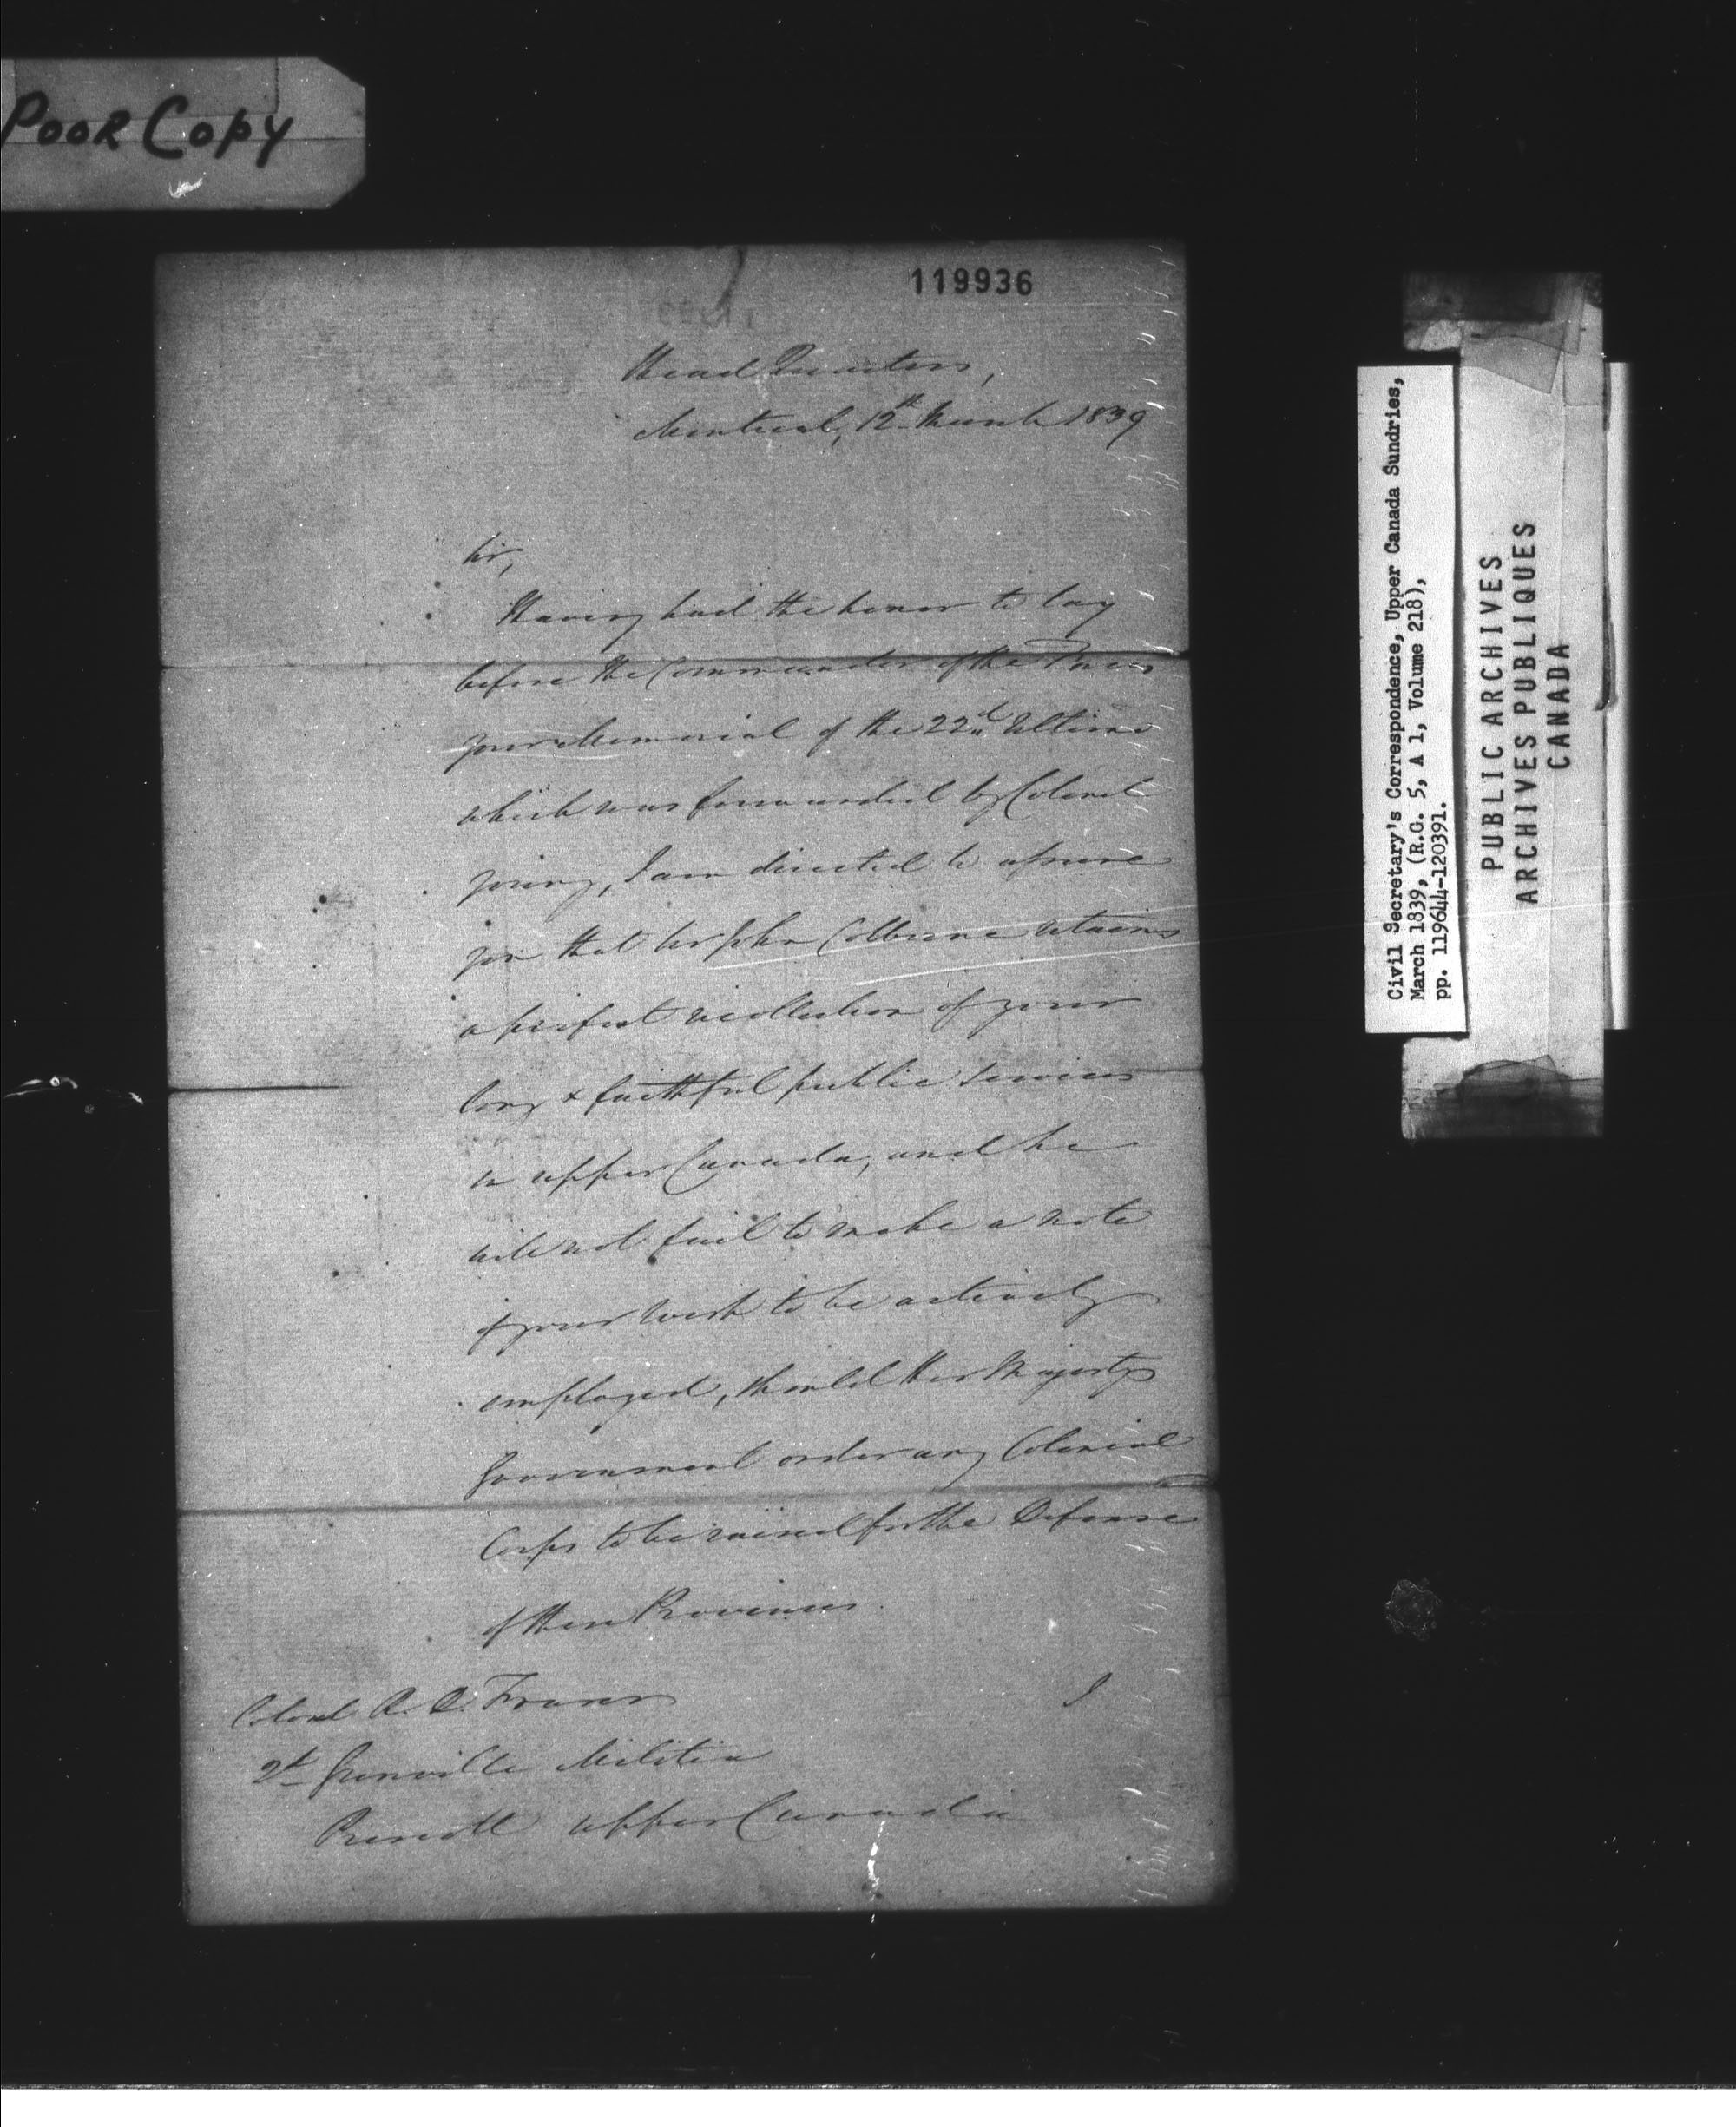 POOR COPY
119936
Head Quarters,
Montreal, 12th March 1839
Sir,
Having had the honor to lay
before the Commander of the Forces
your Memorial of the 22d Ultimo
which was forwarded by Colonel
Young, I am directed to assure
you that Sir John Colborne retains
a perfect recollection of your
long & faithful public services
in Upper Canada, and he
will not fail to make a note
of your wish to be actively
employed, should Her Majesty's
Government order any Colonial
Corps to be raised for the Defense
of these Provinces.
I
Colonel R. D. Fraser
2d Grenville Militia
Prescott Upper Canada
Civil Secretary's Correspondence, Upper Canada Sundries,
March 1839, (R.G. 5, A 1, Volume 218),
pp. 119644-120391.
PUBLIC ARCHIVES
ARCHIVES PUBLIQUES
CANADA